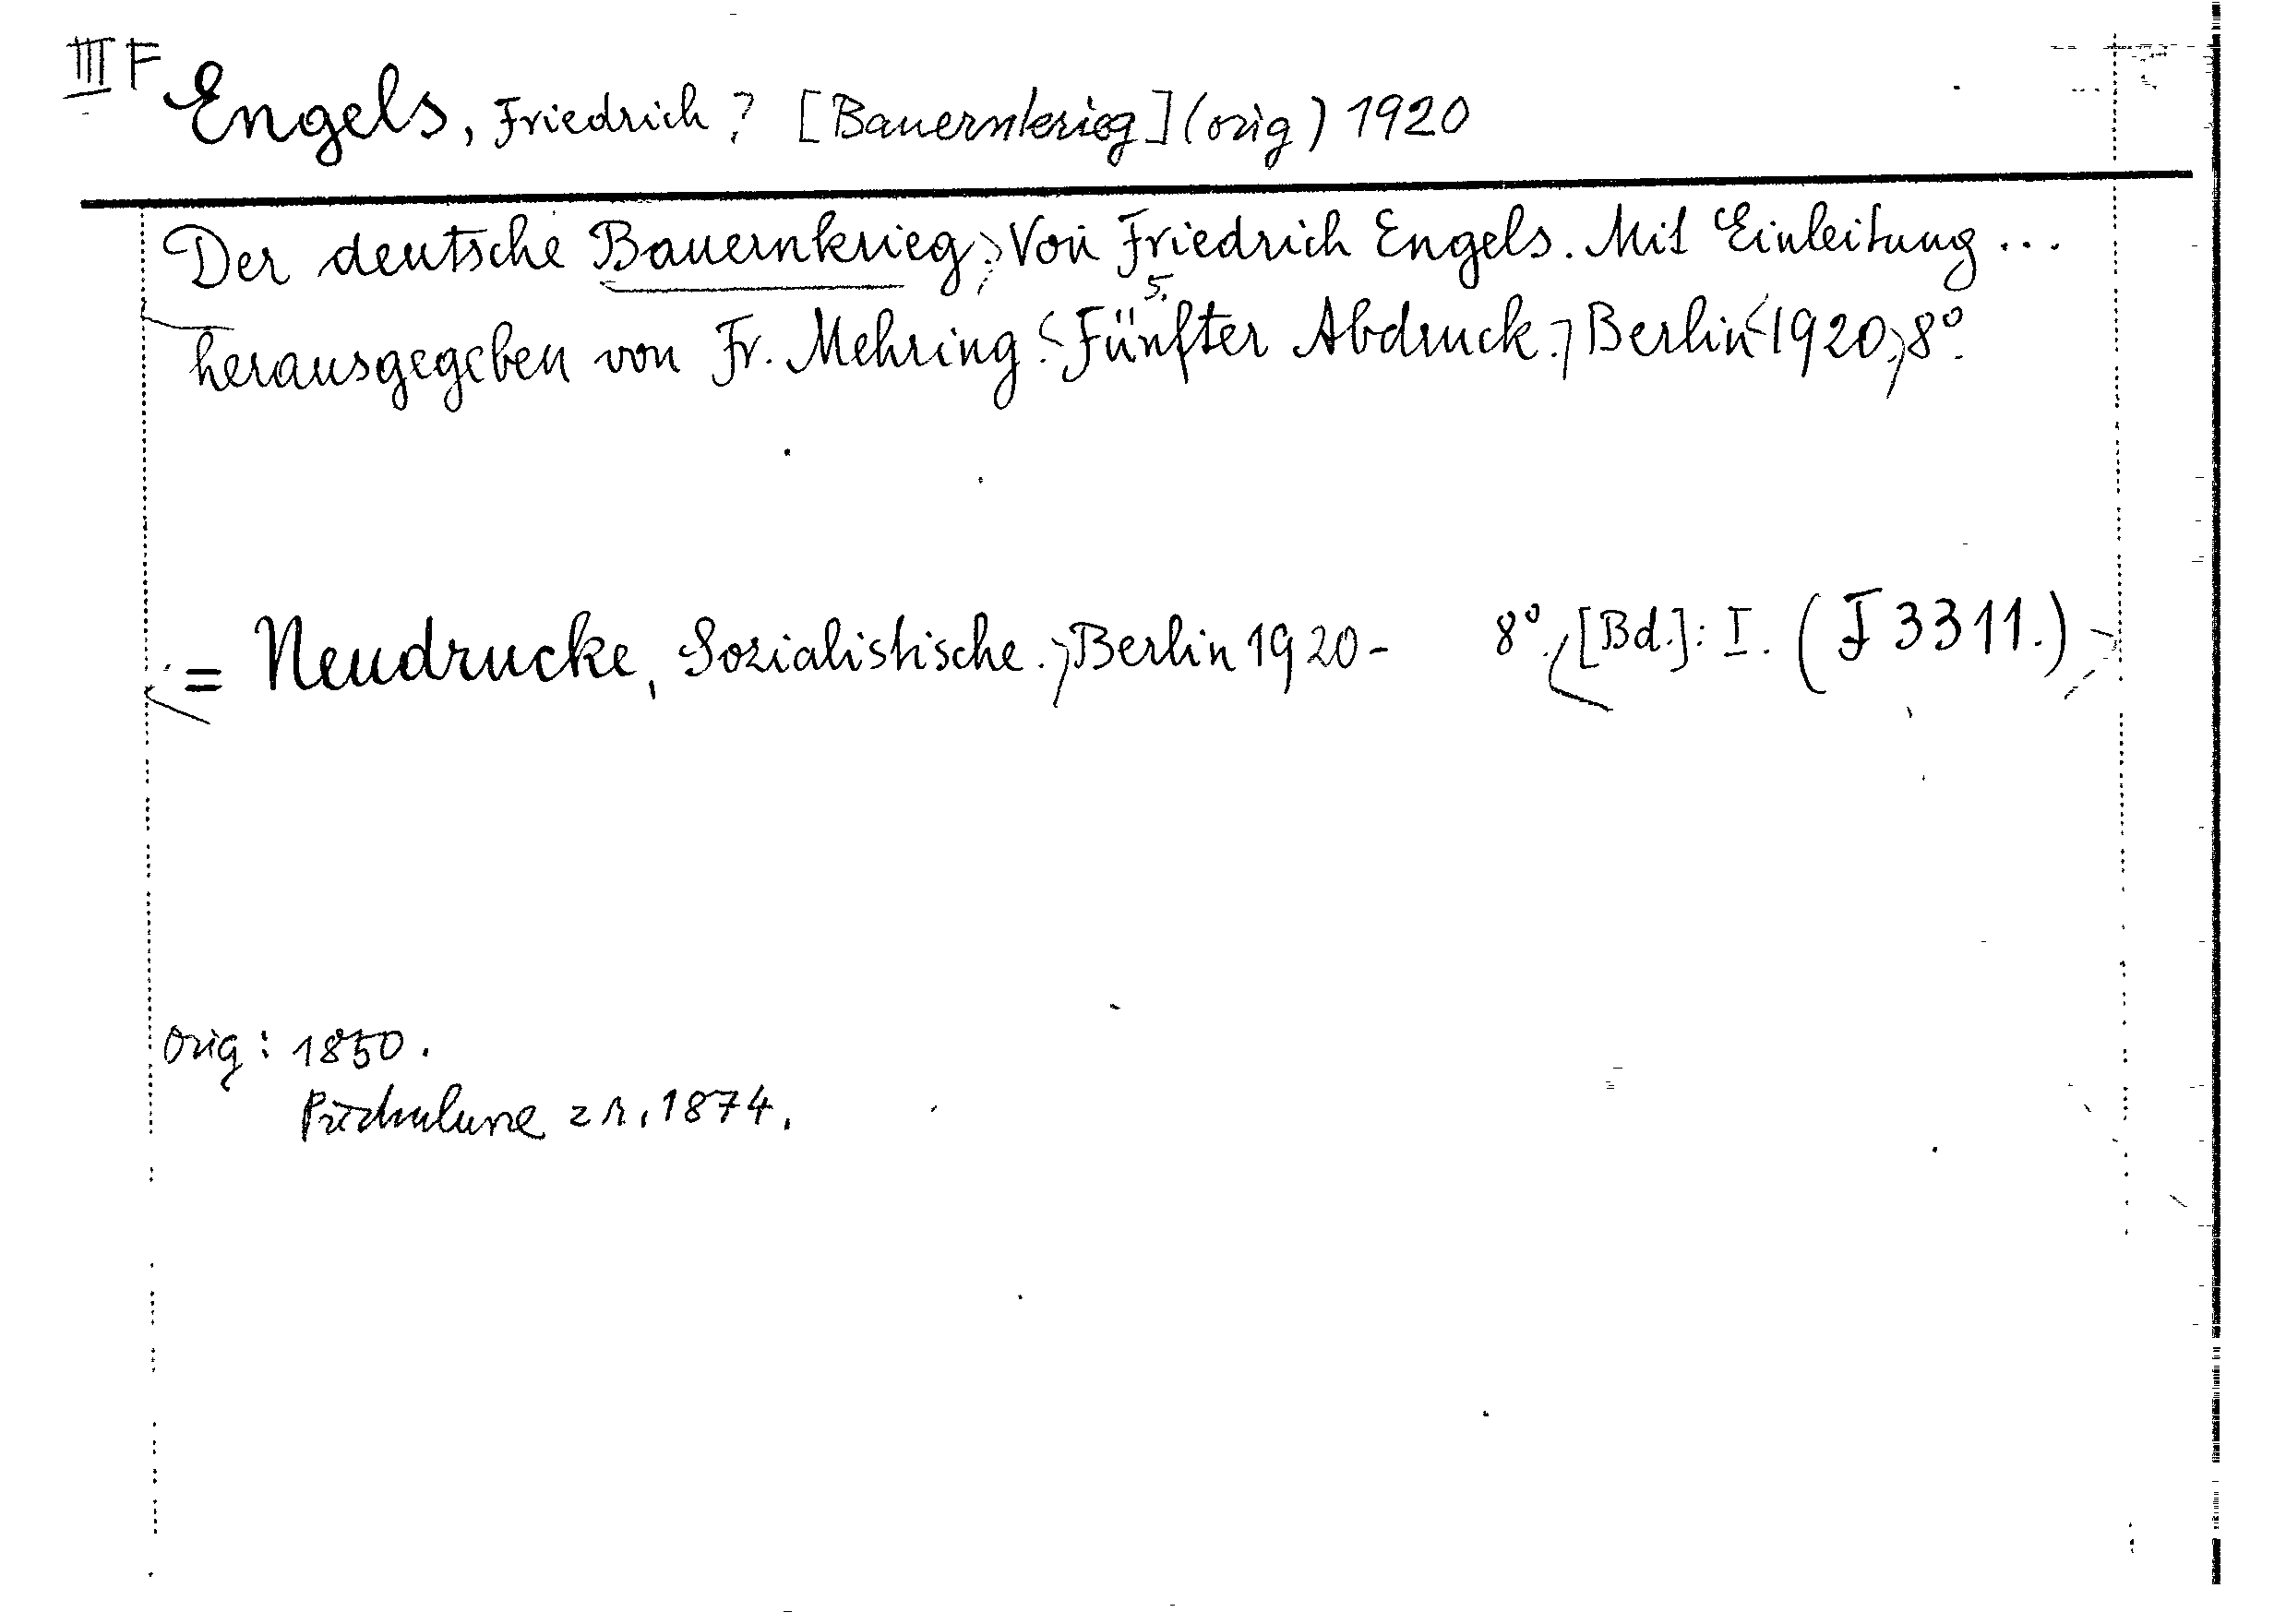 III F Engels, Friedrich ? [Bauernkrieg] (orig) 1920
Der deutsche Bauernkrieg. Von Friedrich Engels. Mit Einleitung ...
5.
herausgegeben von Fr. Mehring. Fünfter Abdruck. Berlin 1920, 8º.
= Neudrucke, Sozialistische. Berlin 1920- 8º. [Bd.]: I. (F 3311.)
Orig: 1850.
1874.